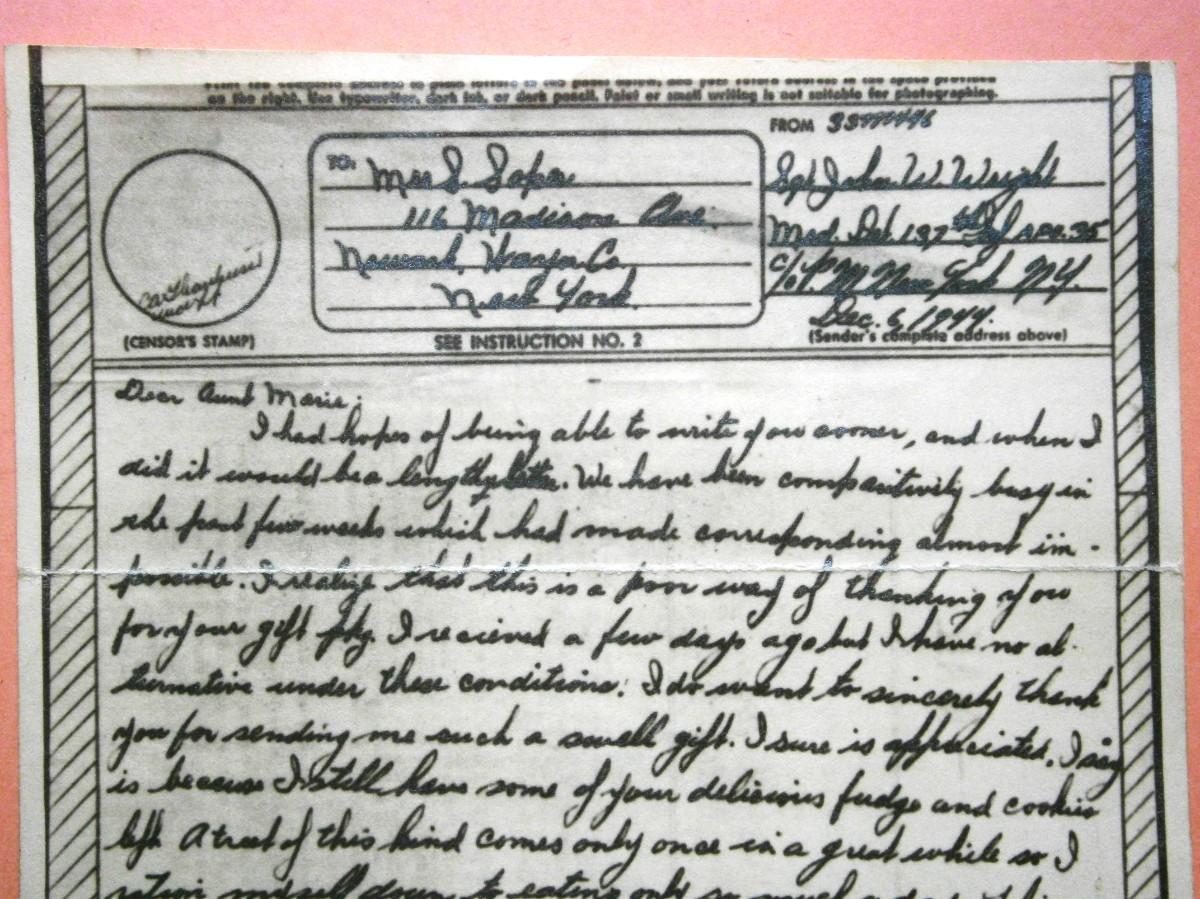 Print the complete address in plain letters in the panel below, and your return address in the space provided
on the right. Use typewriter, dark ink, or dark pencil. Faint or small writing is not suitable for photographing.
FROM
TO: Mrs S.
116 Madison Ave.
Newark, Wayne Co.
New York
Sgt John W. Wright
Med. Det. 137th Inf APO. 35
c/o P.M New York N.Y.
Dec. 6, 1944.
(CENSOR'S STAMP)
SEE INSTRUCTION NO. 2
(Sender's complete address above)
Dear Aunt Marie;
I had hopes of being able to write you sooner, and when I
did it would be a lengthy letter. We have been compartively busy in
the past few weeks which had made corresponding almost im-
possible. I realize that this is a poor way of thanking you
for your gift pkg. I recieved a few days ago but I have no al-
ternative under these conditions. I do want to sincerely thank
you for sending me such a swell gift. I sure is appreciated. I say
is because I still have some of your delicious fudge and cookies
left. A treat of this kind comes only once in a great while so I
ration myself down to eating only so much a day